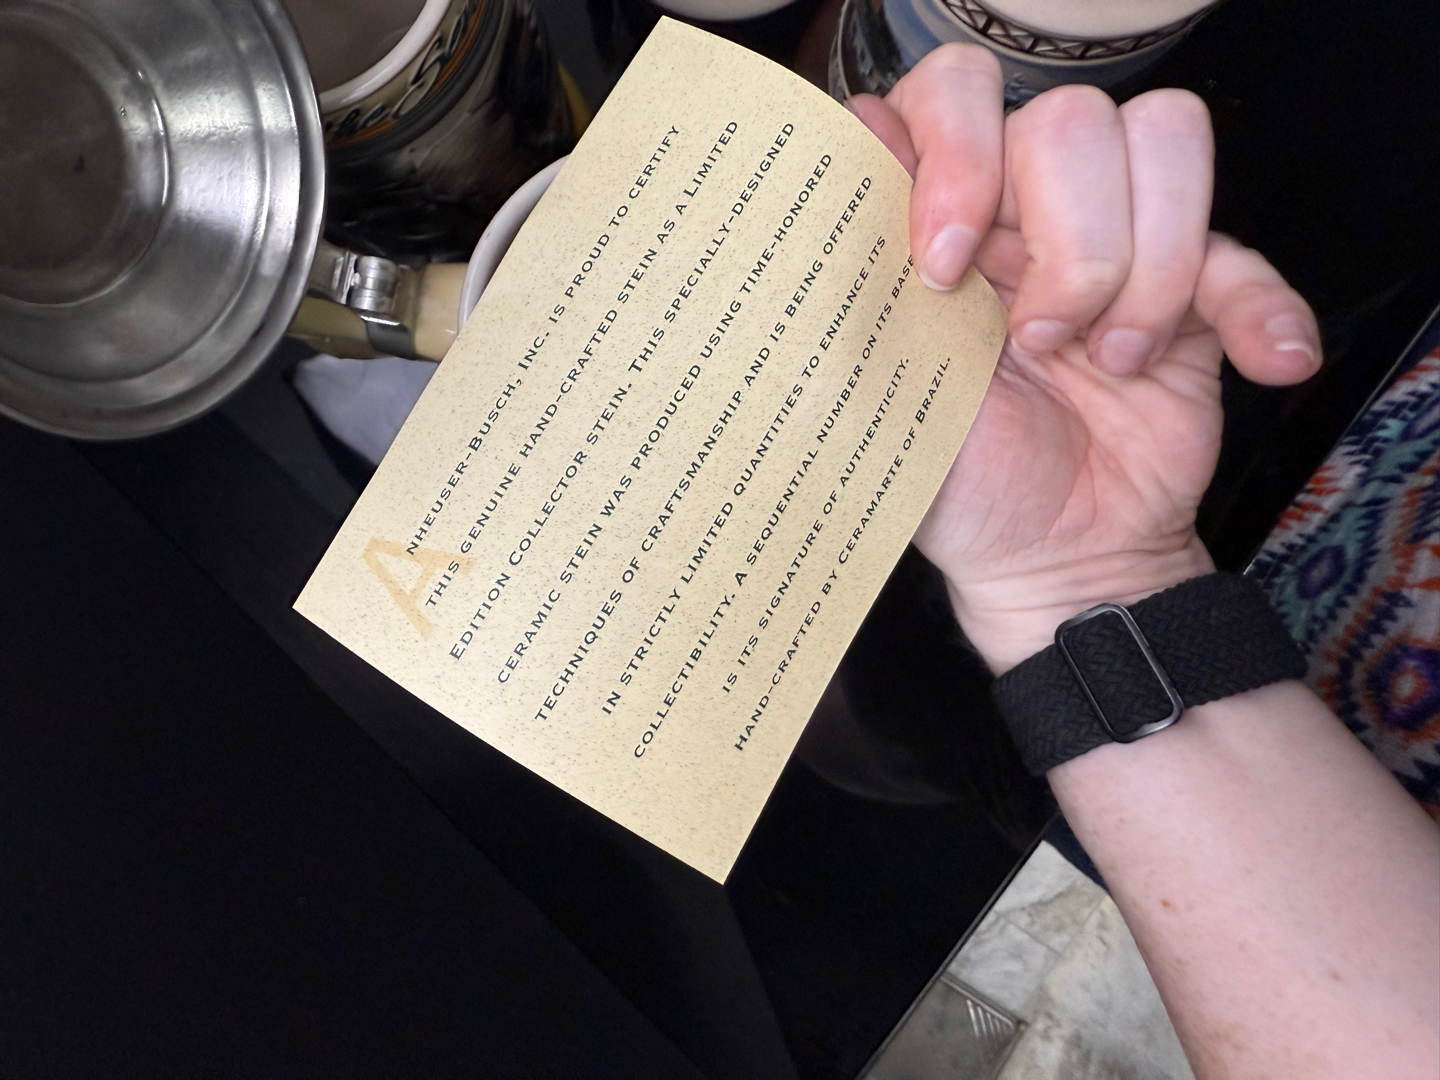 ANHEUSER-BUSCH, INC. IS PROUD TO CERTIFY
THIS GENUINE HAND-CRAFTED STEIN AS A LIMITED
EDITION COLLECTOR STEIN. THIS SPECIALLY-DESIGNED
CERAMIC STEIN WAS PRODUCED USING TIME-HONORED
TECHNIQUES OF CRAFTSMANSHIP AND IS BEING OFFERED
IN STRICTLY LIMITED QUANTITIES TO ENHANCE ITS
COLLECTIBILITY. A SEQUENTIAL NUMBER ON ITS BASE
IS ITS SIGNATURE OF AUTHENTICITY.
HAND-CRAFTED BY CERAMARTE OF BRAZIL.